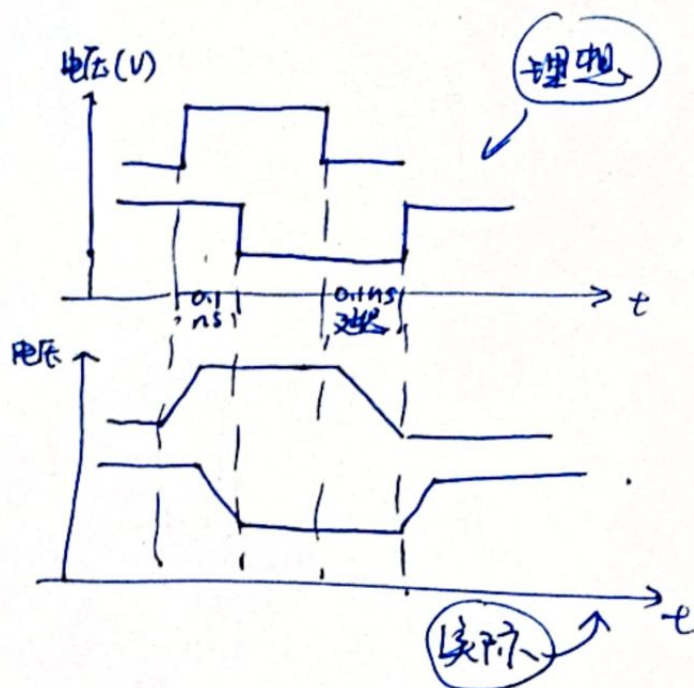 电压(V)
理想
0.1
ns
0.1ns
延迟
t
电压
t
实际